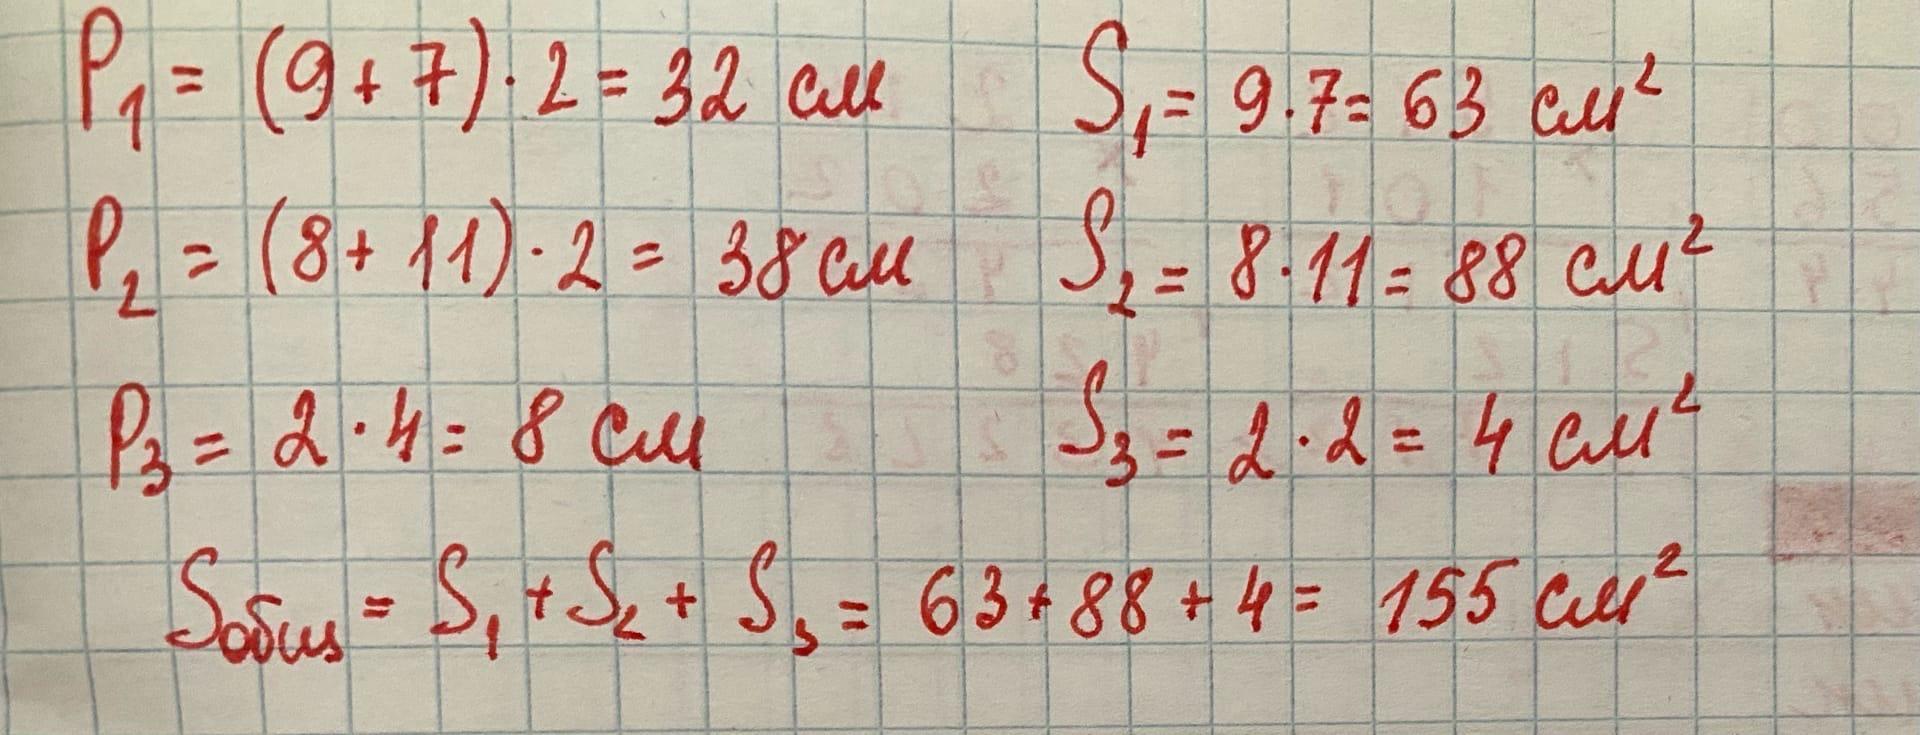 P₁ = (9 + 7) · 2 = 32 см S₁ = 9 · 7 = 63 см²
P₂ = (8 + 11) · 2 = 38 см S₂ = 8 · 11 = 88 см²
P₃ = 2 · 4 = 8 см S₃ = 2 · 2 = 4 см²
Sобщ = S₁ + S₂ + S₃ = 63 + 88 + 4 = 155 см²